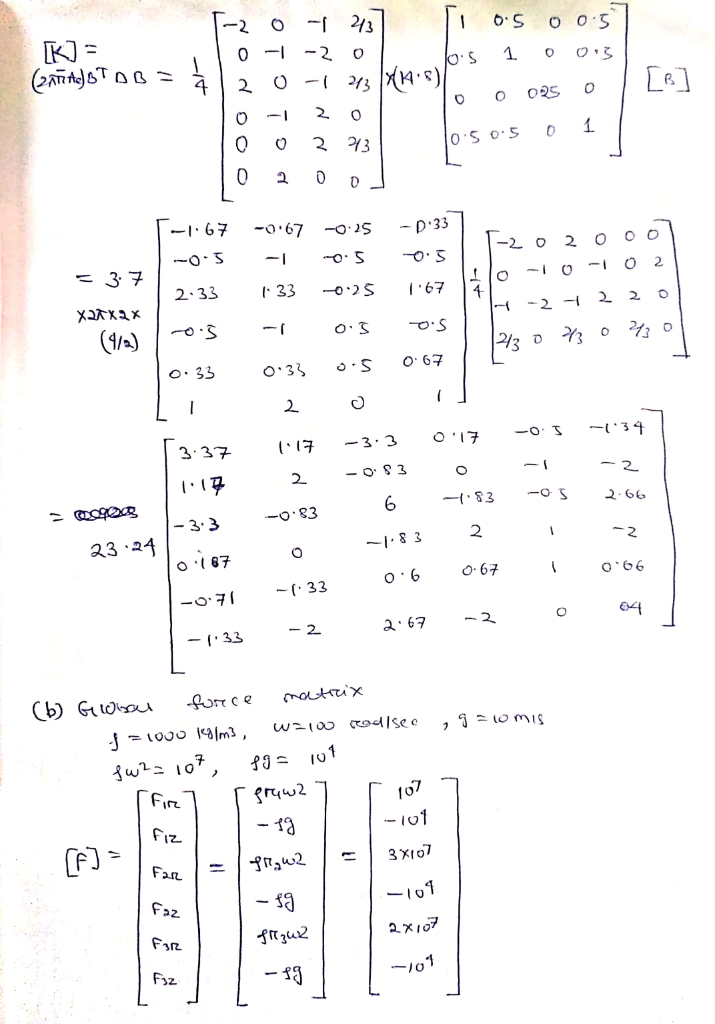 [K] =
(2πr̄Ae)BᵀDB = 1/4 [-2 0 -1 2/3; 0 -1 -2 0; 2 0 -1 2/3; 0 -1 2 0; 0 0 2 2/3; 0 2 0 0] x [1 0.5 0 0.5; 0.5 1 0 0.5; 0 0 025 0; 0.5 0.5 0 1] [B]
= 3.7 x2πx2x (4/2) [-1.67 -0.67 -0.25 -0.33; -0.5 -1 -0.5 -0.5; 2.33 1.33 -0.25 1.67; -0.5 -1 0.5 -0.5; 0.33 0.33 0.5 0.67; 1 2 0 1] 1/4 [-2 0 2 0 0 0; 0 -1 0 -1 0 2; -1 -2 -1 2 2 0; 2/3 0 2/3 0 2/3 0]
= 23.24 [3.37 1.17 -3.3 0.17 -0.5 -1.34; 1.17 2 -0.83 0 -1 -2; -3.3 -0.83 6 -1.83 -0.5 2.66; 0.167 0 -1.83 2 1 -2; -0.71 -1.33 0.6 0.67 1 0.66; -1.33 -2 2.67 -2 0 4]
(b) Global force matrix
ρ = 1000 kg/m3, w=100 rad/sec, g=10 m/s
ρw²= 10⁷, ρg = 10⁴
[F] = [F1r; F1z; F2r; F2z; F3r; F3z] = [ρr1w2; -ρg; ρr2w2; -ρg; ρr3w2; -ρg] = [10⁷; -10⁴; 3x10⁷; -10⁴; 2x10⁷; -10⁴]